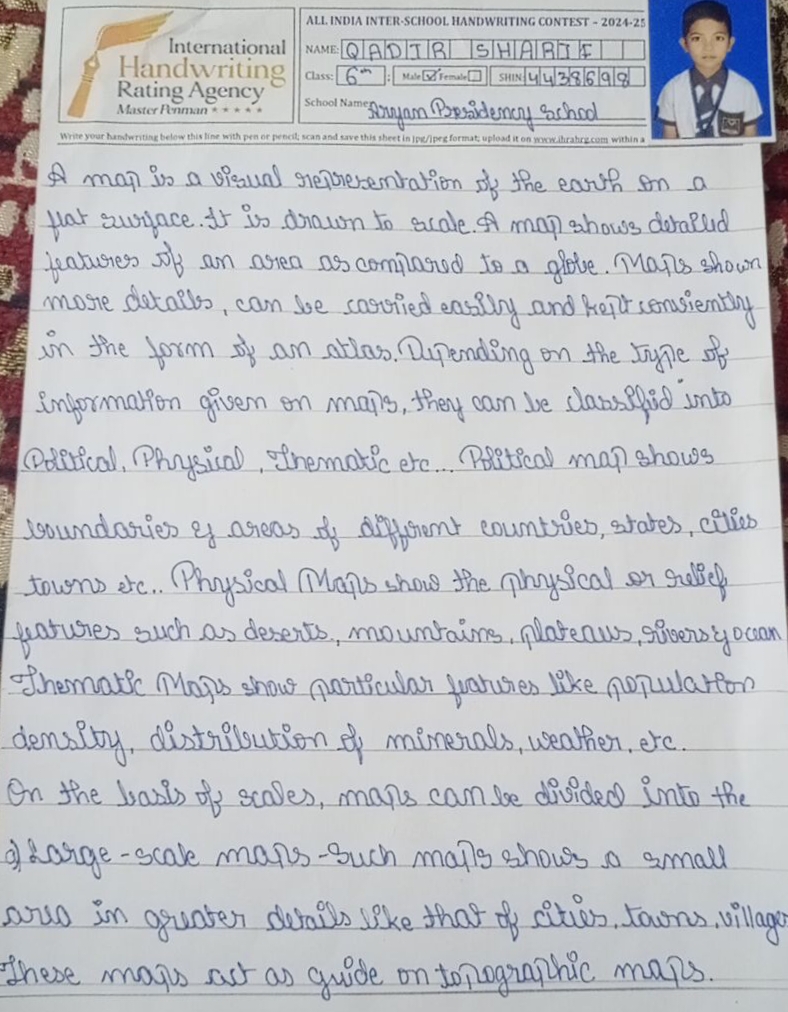 International
Handwriting
Rating Agency
Master Penman
ALL INDIA INTER-SCHOOL HANDWRITING CONTEST - 2024-25
NAME: QADIR SHARIF
Class: 6th Male ☑ Female ☐ SHIN 4438698
School Name Aryan Presidency School
Write your handwriting below this line with pen or pencil; scan and save this sheet in jpg/jpeg format; upload it on www.ihrahrg.com within a
A map is a visual representation of the earth on a
flat surface. It is drawn to scale. A map shows detailed
features of an area as compared to a globe. Maps shown
more details, can be carried easily and kept conviently
in the form of an atlas. Depending on the type of
information given on maps, they can be classified into
Political, Physical, Thematic etc... Political map shows
boundaries & areas of different countries, states, cities
towns etc.. Physical Maps show the physical or relief
features such as deserts, mountains, plateaus, rivers & ocean
Thematic Maps show particular features like population
density, distribution of minerals, weather, etc.
On the basis of scales, maps can be divided into the
a) Large-scale maps - Such maps shows a small
area in greater details like that of cities, towns, village
These maps act as guide on topographic maps.